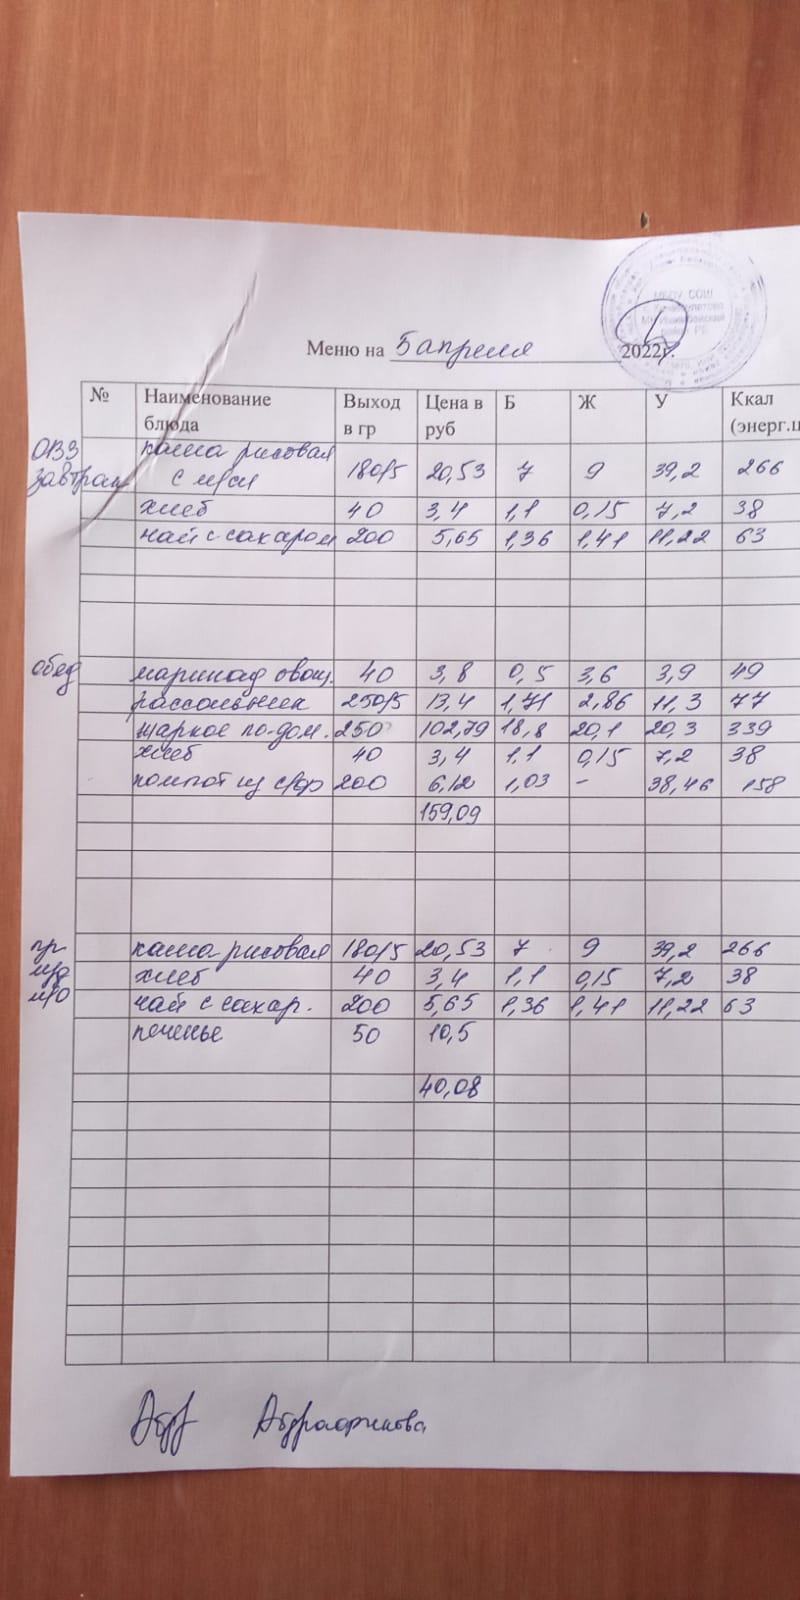 МБОУ СОШ
Меню на 5 апреля 2022г.
№ Наименование блюда Выход в гр Цена в руб Б Ж У Ккал (энерг.ц
ОВЗ каша рисовая
завтрак с м/сл 180/5 20,53 7 9 39,2 266
хлеб 40 3,4 1,1 0,15 7,2 38
чай с сахаром 200 5,65 1,36 1,41 11,22 63
обед маринад овощ. 40 3,8 0,5 3,6 3,9 49
рассольник 250/5 13,4 1,71 2,86 11,3 77
жаркое по-дом. 250 102,79 18,8 20,1 20,3 339
хлеб 40 3,4 1,1 0,15 7,2 38
компот из с/фр 200 6,12 1,03 - 38,46 158
159,09
каша рисовая 180/5 20,53 7 9 39,2 266
хлеб 40 3,4 1,1 0,15 7,2 38
м/о чай с сахар. 200 5,65 1,36 1,41 11,22 63
печенье 50 10,5
40,08